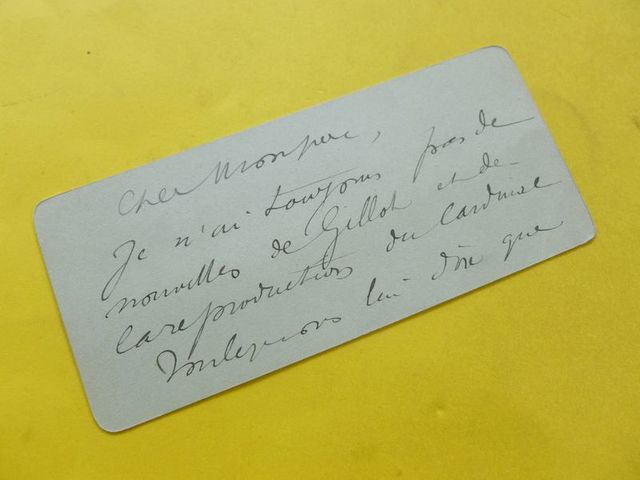 Cher Monsieur,
Je n'ai toujours pas de
nouvelles de Gillot et de
la reproduction du Cardinal
Voulez vous lui dire que